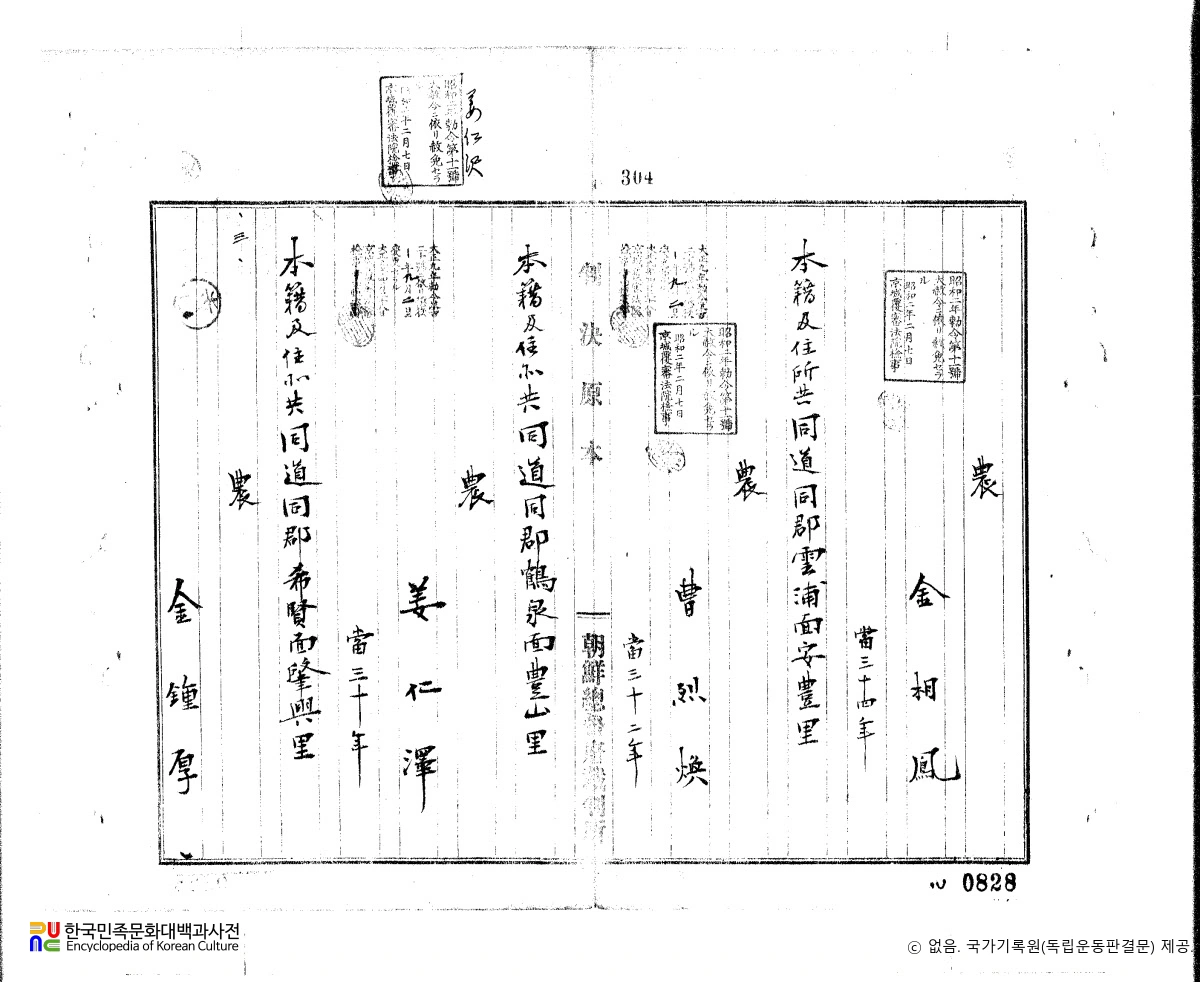 304
農
金相鳳
當三十四年
昭和二年勅令第十一號
大赦令ニ依リ赦免セラ
ル
昭和二年二月七日
京城覆審法院檢事
本籍及住所共同道同郡雲浦面安豊里
農
曺烈煥
當三十二年
昭和二年勅令第十一號
大赦令ニ依リ赦免セラ
ル
昭和二年二月七日
京城覆審法院檢事
判決原本
朝鮮總督府裁判所
本籍及住所共同道同郡鶴泉面豊山里
農
姜仁澤
當三十年
姜仁沢
昭和二年勅令第十一號
大赦令ニ依リ赦免セラ
本籍及住所共同道同郡希賢面肇興里
農
三
金鍾厚
0828
한국민족문화대백과사전
Encyclopedia of Korean Culture
ⓒ 없음. 국가기록원(독립운동판결문) 제공.